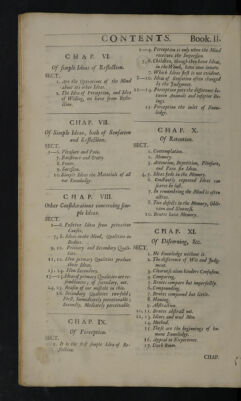 CONTENTS. Book. II.
CHAP. VI.
Of simple Ideas of Reflection.
SECT.
1. Are the Operations of the Mind
about its other Ideas.
2. The Idea of Perception, and Idea
of Willing, we have from Reflection.
CHAP. VII.
Of Simple Ideas, both of Sensation
and Reflection.
SECT.
1—6. Pleasure and Pain.
7. Existence and Unity
8. Power.
9. Succession.
10. Simple Ideas the Materials of all
our Knowledge.
CHAP. VIII.
Other Considerations concerning simple
Ideas.
SECT.
1—6. Positive Ideas from privative
Causes.
7, 8. Ideas in the Mind, Qualities in
Bodies.
9, 10. Primary and Secondary Qualities.
11, 12. How primary Qualities produce
their Ideas.
13, 14. How Secondary.
Ideas of primary Qualities are resemblances;
of Secondary, not.
Secondary Qualities twofold;
First, Immediately perceivable;
Secondly, Mediately perceivable.
CHAP. IX.
Of Perception.
SECT.
1. It is the first simple Idea of Reflection.
Perception is only when the Mind
receives the Impression.
5, 6. Children, though they have Ideas,
in the Womb, have none innate.
7. Which Ideas first is not evident.
8—10. Ideas of Sensation often changed
by the Judgment.
11—14. Perception puts the difference between
Animals and inferior Beings.
15. Perception the inlet of Knowledge.
CHAP. X.
Of Retention.
SECT.
1. Contemplation.
2. Memory.
3. Attention, Repetition, Pleasure,
and Pain fix Ideas.
4, 5. Ideas fade in the Memory.
6. Constantly repeated Ideas can
scarce be lost.
7. In remembring the Mind is often
active.
8. Two defects in the Memory, Oblivion
and Slowness.
10. Brutes have Memory.
CHAP. XI.
Of Discerning, &c.
SECT.
1. No Knowledge without it.
2. The difference of Wit and Judgment.
3. Clearness alone hinders Confusion.
4. Comparing.
5. Brutes compare but imperfectly.
6. Compounding.
7. Brutes compound but little.
8. Naming.
9. Abstraction.
10, 11. Brutes abstract not.
12, 13. Idiots and mad Men.
14. Method.
15. These are the beginnings of humane
Knowledge.
16. Appeal to Experience.
17. Dark Room.
CHAP.